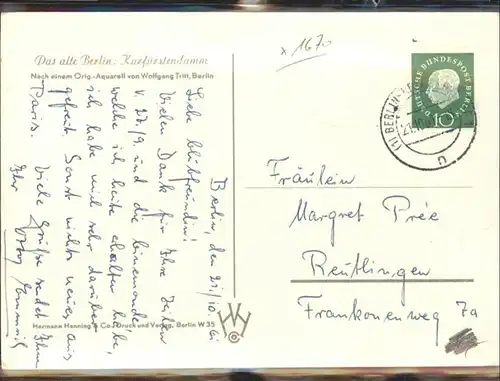 Das alte Berlin: Kurfürstendamm
Nach einem Orig.-Aquarell von Wolfgang Tritt, Berlin
x 1670
DEUTSCHE BUNDESPOST BERLIN
10
(1) BERLIN
Berlin, den 21/10. 61
Liebe
Vielen Dank für Ihre Zeilen
v. 27/9. und die
welche ich heute erhalten habe,
ich habe mich sehr darüber
gefreut. Sonst nichts neues aus
Paris. Viele Grüße sendet Ihnen
Ihr
Fräulein
Margret Prée
Reutlingen
Frankonenweg 7a
Hermann Henning & Co., Druck und Verlag, Berlin W 35